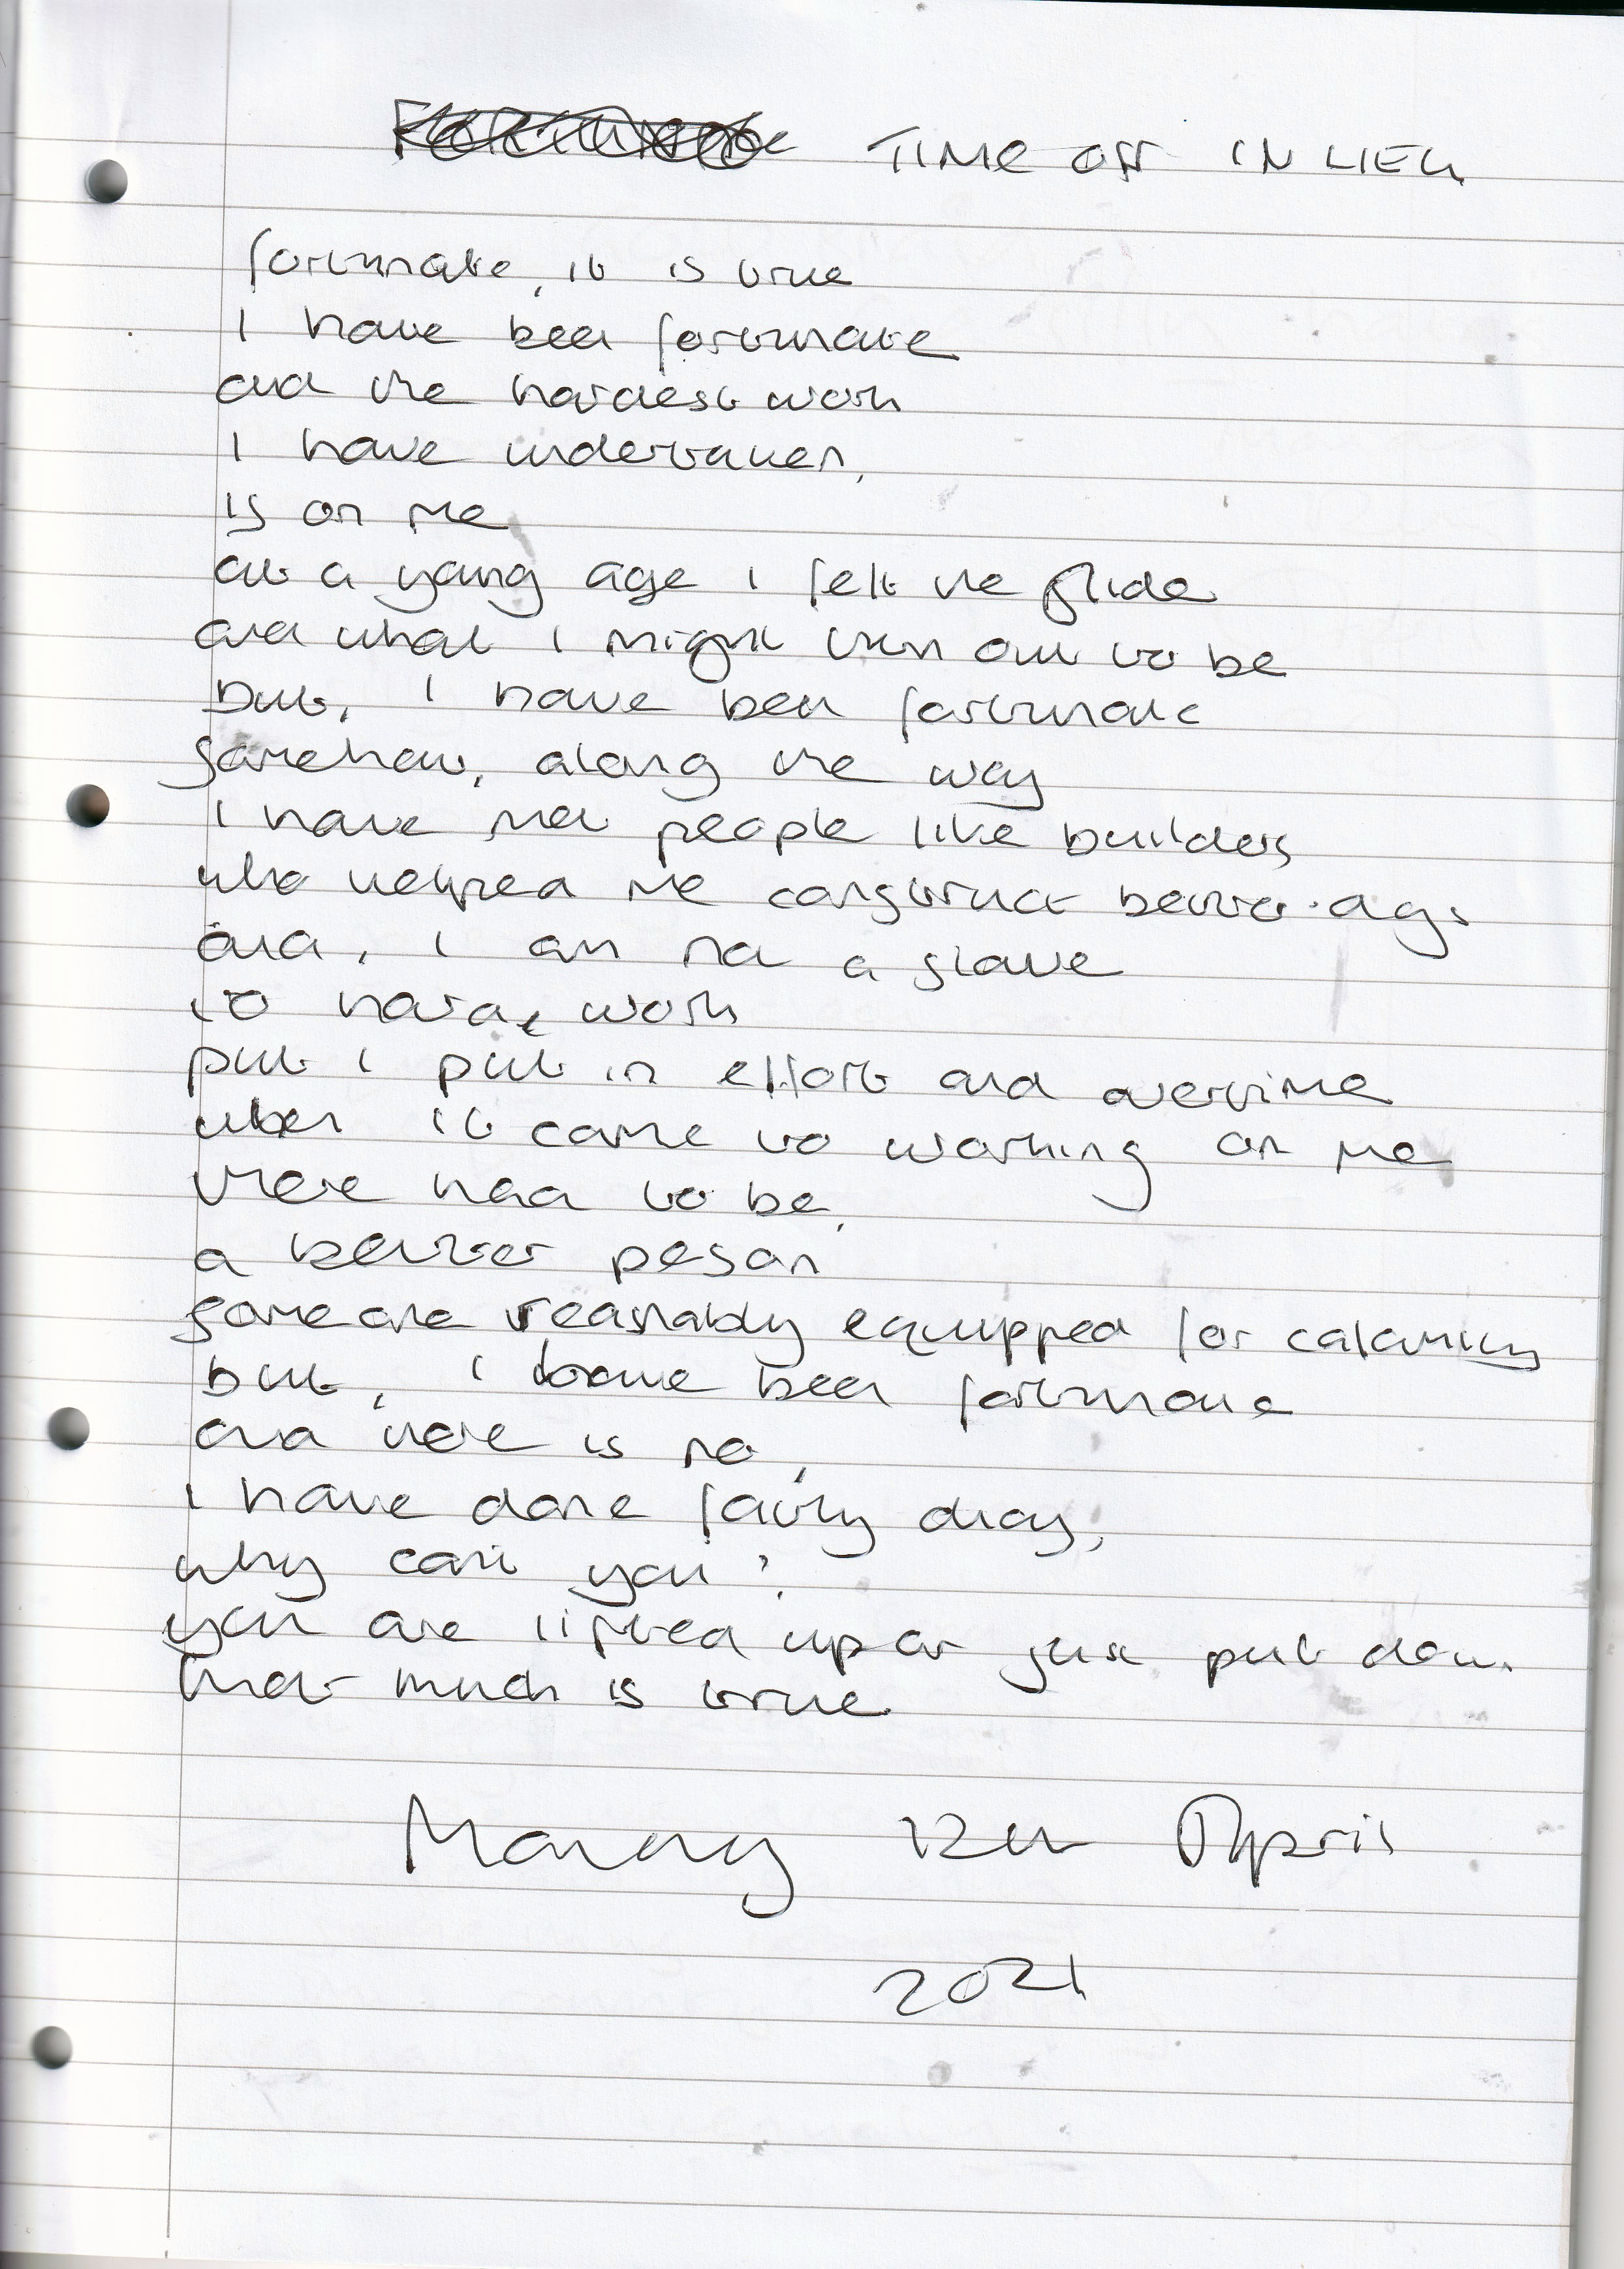 TIME OFF IN LIEU
fortunate, it is true
I have been fortunate
and the hardest work
I have undertaken,
is on me
at a young age I felt the glide
and what I might turn out to be
but, I have been fortunate
somehow, along the way
I have met people like builders
who helped me construct better
and, I am not a slave
to hard work
put I put in effort and overtime
when it came to working on me
there had to be,
a better person
someone reasonably equipped for calamity
but, I have been fortunate
and there is no,
I have done fairly okay,
why can't you?
you are lifted up or just put down
that much is true
Monday 12th April
2021